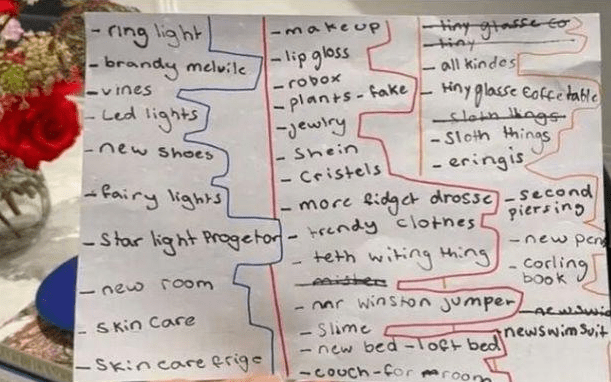 - ring light
- brandy melvile
- vines
- Led lights
- new shoes
- fairy lights
- Star light Progetor
- new room
- Skin care
- Skin care frige
- makeup
- lip gloss
- robox
- plants - fake
- jewlry
- Shein
- Cristels
- more fidget drosse
- trendy clothes
- teth witing thing
- mr winston jumper
- Slime
- new bed - loft bed
- couch - for room
- tiny glasse co
- tiny
- all kindes
- tiny glasse coffe table
- sloth things
- Sloth things
- eringis
- second
piersing
- new pen
- corling
book
- newswim suit